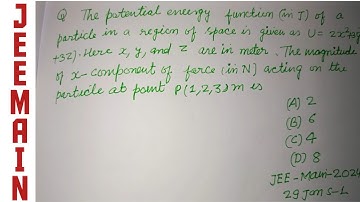 JEE MAIN
Q The potential energy function (in J) of a
particle in a region of space is given as U= 2x²+3y
+3z). Here x, y, and z are in meter. The magnitude
of x-component of force (in N) acting on the
particle at point P(1,2,3) m is
(A) 2
(B) 6
(C) 4
(D) 8
JEE-Main-2024
29 Jan S-1